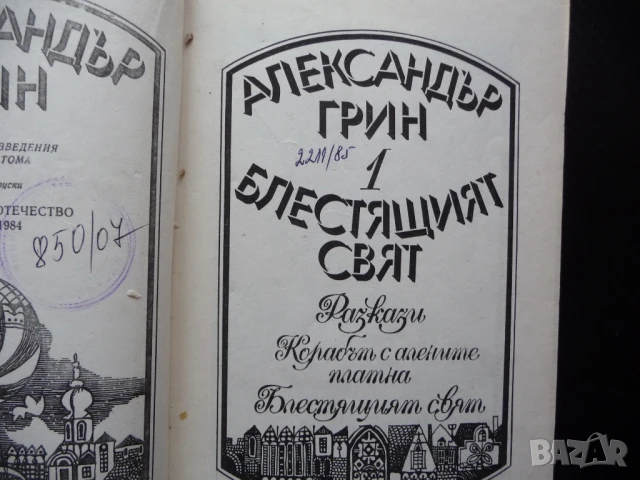 АНДЪР
ИН
ЗВЕДЕНИЯ
ТОМА
руски
ОТЕЧЕСТВО
1984
850/07
АЛЕКСАНДЪР
ГРИН
2211/85
1
БЛЕСТЯЩИЯТ
СВЯТ
Разкази
Корабът с алените
платна
Блестящият свят
BAZAR